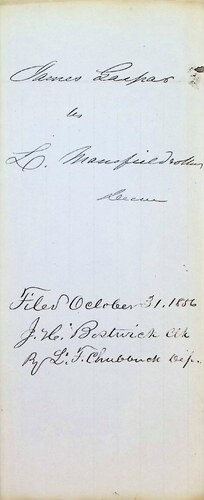 James Gaspar
vs
L. Mansfield others
Decree
Filed October 31. 1856
J. H. Bostwick Clk
By L. F. Chubbuck Dep.